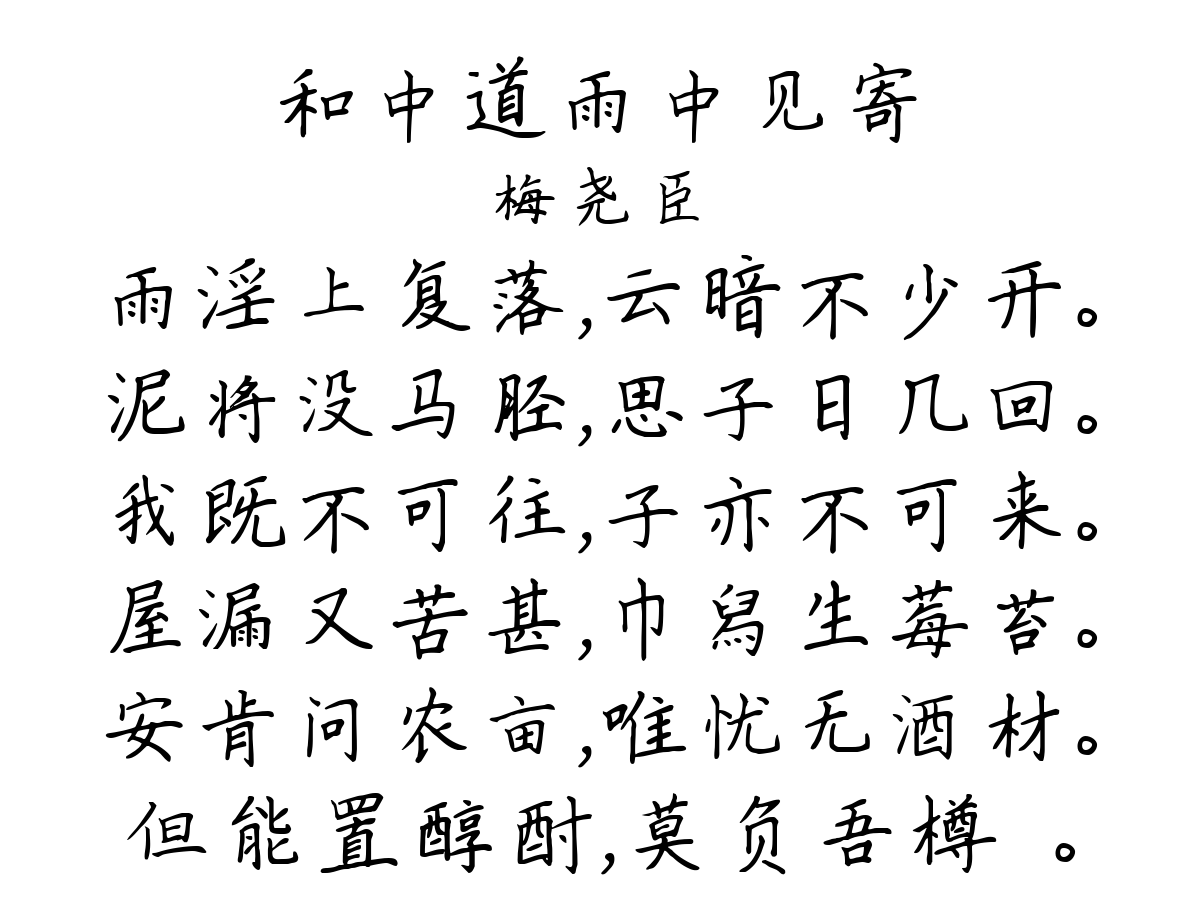 和中道雨中见寄
梅尧臣
雨淫上复落,云暗不少开。
泥将没马胫,思子日几回。
我既不可往,子亦不可来。
屋漏又苦甚,巾舄生莓苔。
安肯问农亩,唯忧无酒材。
但能置醇酎,莫负吾樽 。